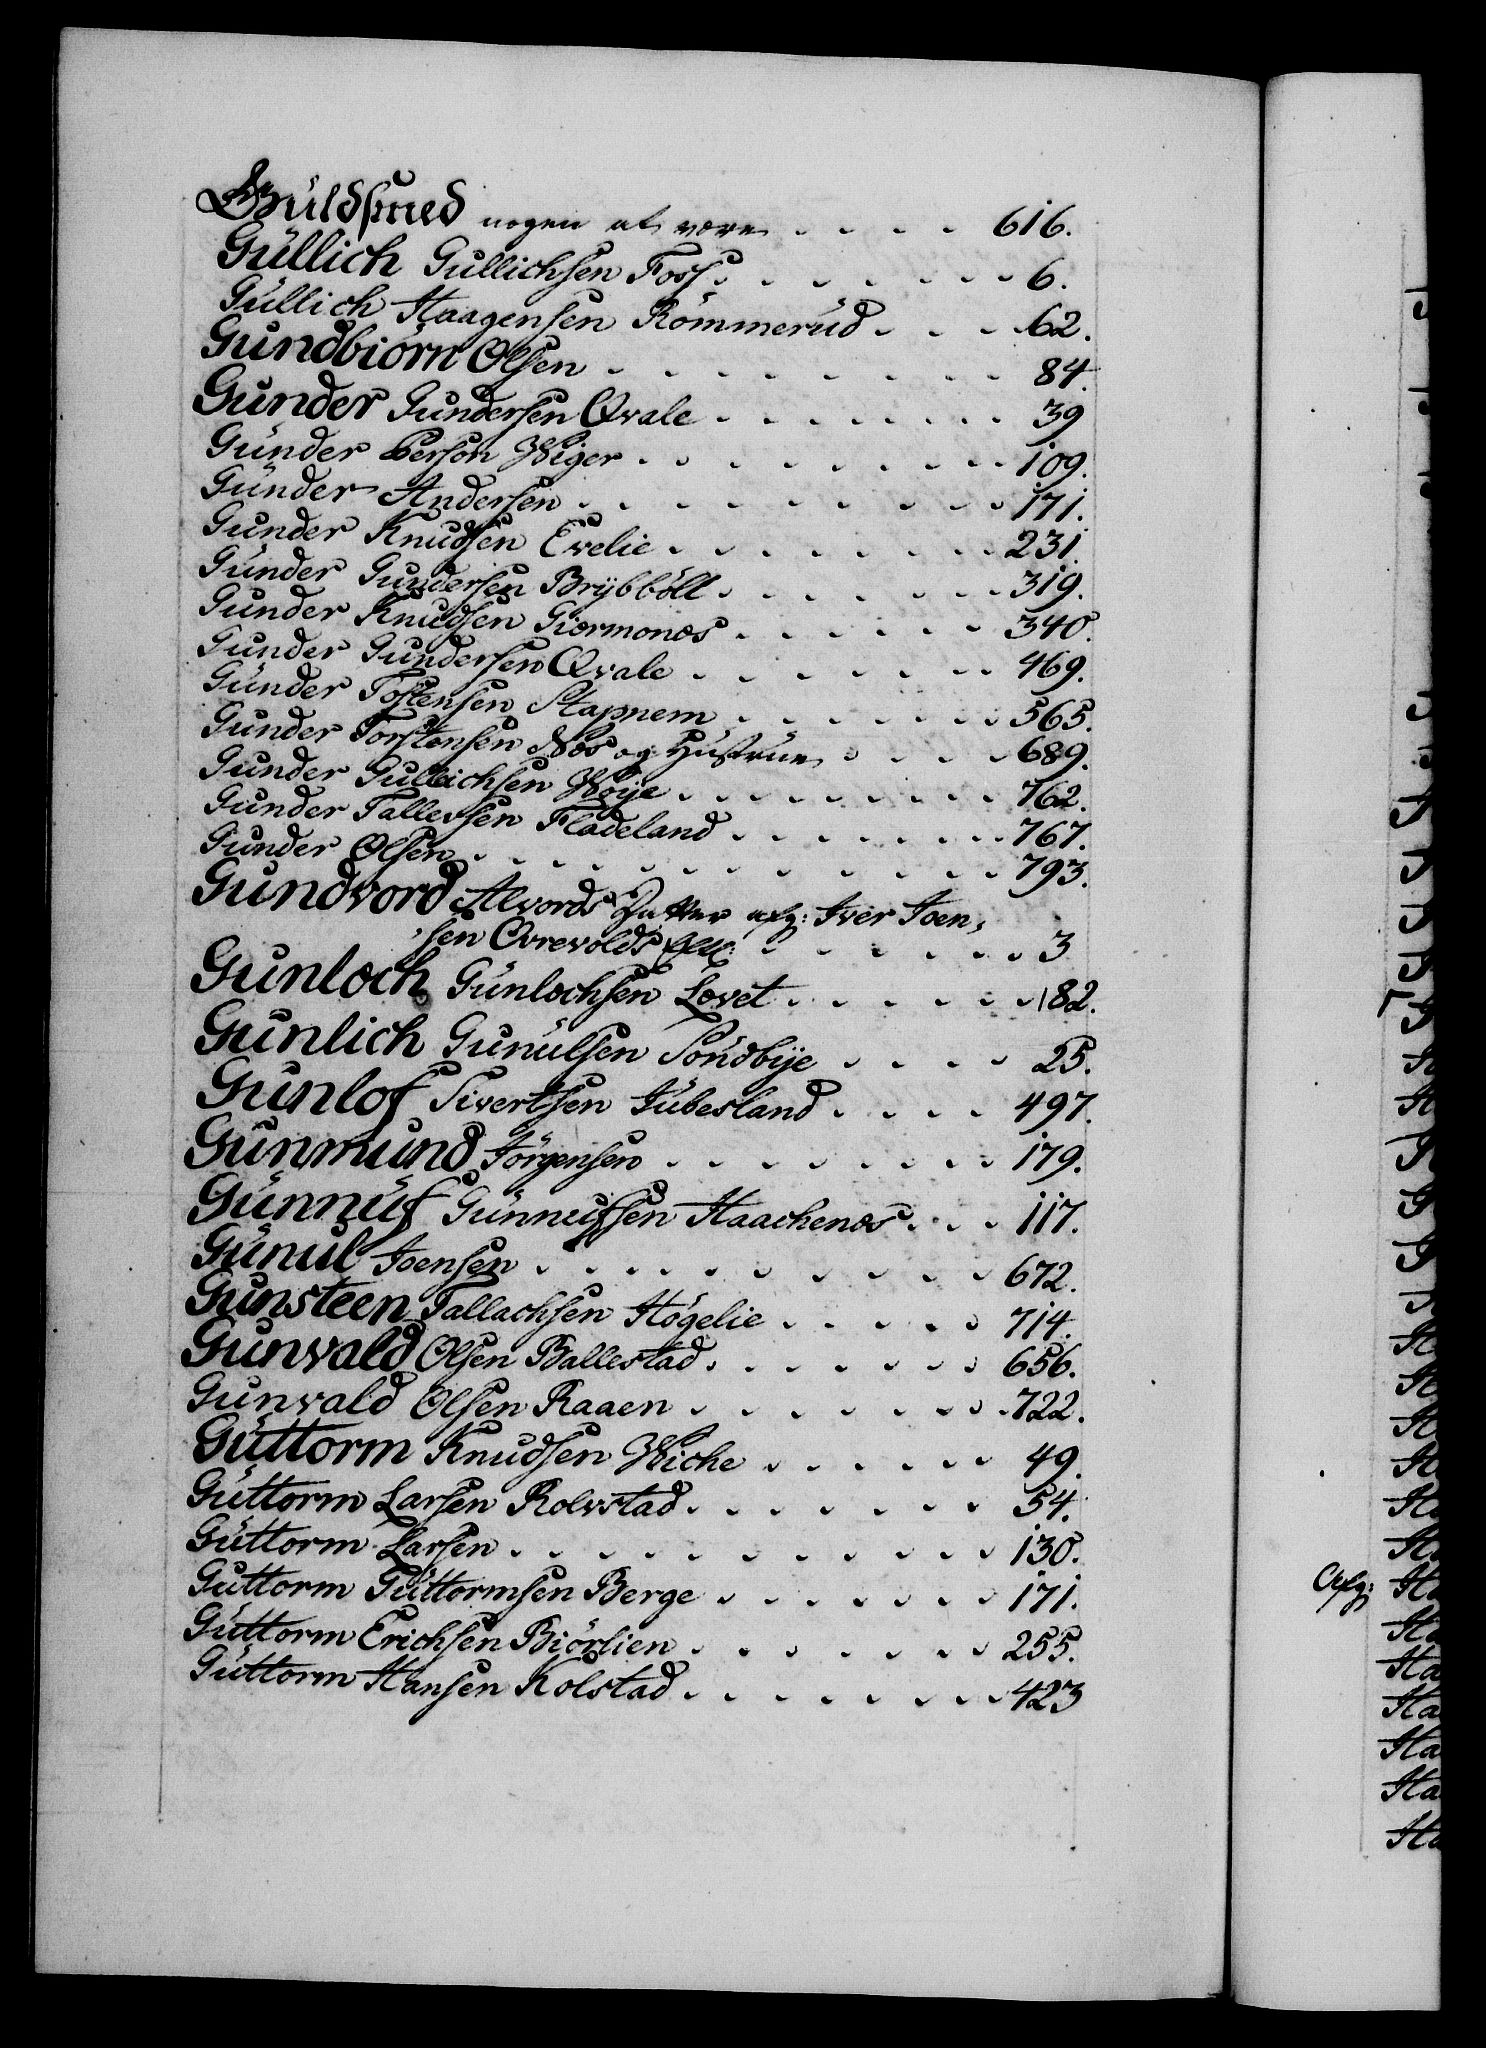 Guldsmed nogen at være . . . . 616.
Güllich Gullichsen Foss . . . . . . . 6.
Güllich Haagensen Römmerud . . . 62.
Gundbiörn Olsen . . . . . . . . . 84.
Gunder Gundersen Qvale . . . . . . . 39
Günder Person Wiger . . . . . . . . 109.
Günder Andersen . . . . . . . . . 171.
Gunder Knudsen Evelie . . . . . . . 231.
Günder Gundersen Brÿbböll . . . . . . 319.
Gunder Knudsen Giermonæs . . . . . . 340.
Gunder Gundersen Qvale . . . . . . . 469.
Günder Tostensen Stapnem . . . . . . 565.
Gunder Torstensen Næs og Hustrue . . . . 689.
Gunder Gullichsen Woije . . . . . . . 762.
Gunder Tallevsen Fladeland . . . . . . 767.
Gunder Olsen . . . . . . . . . . 793.
Gundvord Alvords Datter afg: Iver Joen,
sen Ovrevolds . . . . . . . 3
Gunloch Günlochsen Lovet . . . . . . 182.
Gunlich Gunülsen Söndbÿe . . . . 25.
Gunlof Sivertsen Jübesland . . . . 497.
Gunmund Jörgensen . . . . . . . . 179.
Günnüf Günnufsen Haachenæs . . . 117.
Günul Joensen . . . . . . . . . . 672.
Gunsteen Tallachsen Högelie . . . . . 714.
Gunvald Olsen Ballestad . . . . . . . 656.
Gunvald Olsen Raaen . . . . . . . 722.
Güttorm Knudsen Wiche . . . . . . 49.
Güttorm Larsen Rolvstad . . . . . . . 54.
Güttorm Larsen . . . . . . . . . . 130.
Guttorm Güttormsen Berge . . . . . . . 171.
Güttorm Erichsen Biörlien . . . . . . . 255.
Güttorm Hansen Kolstad . . . . . . . . 423
Afg: